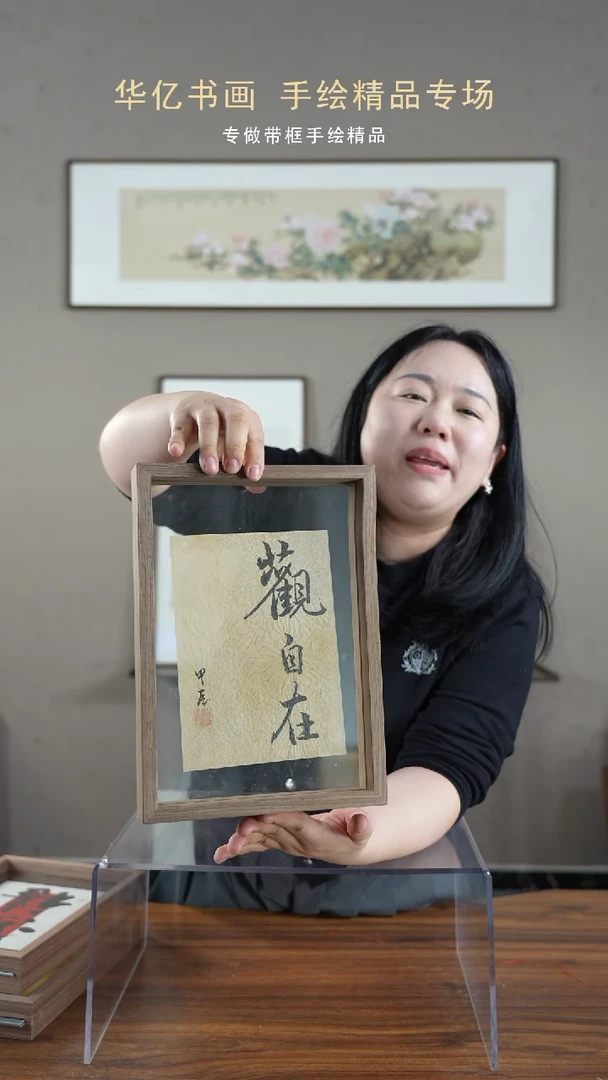 华亿书画 手绘精品专场
专做带框手绘精品
觀自在
甲辰